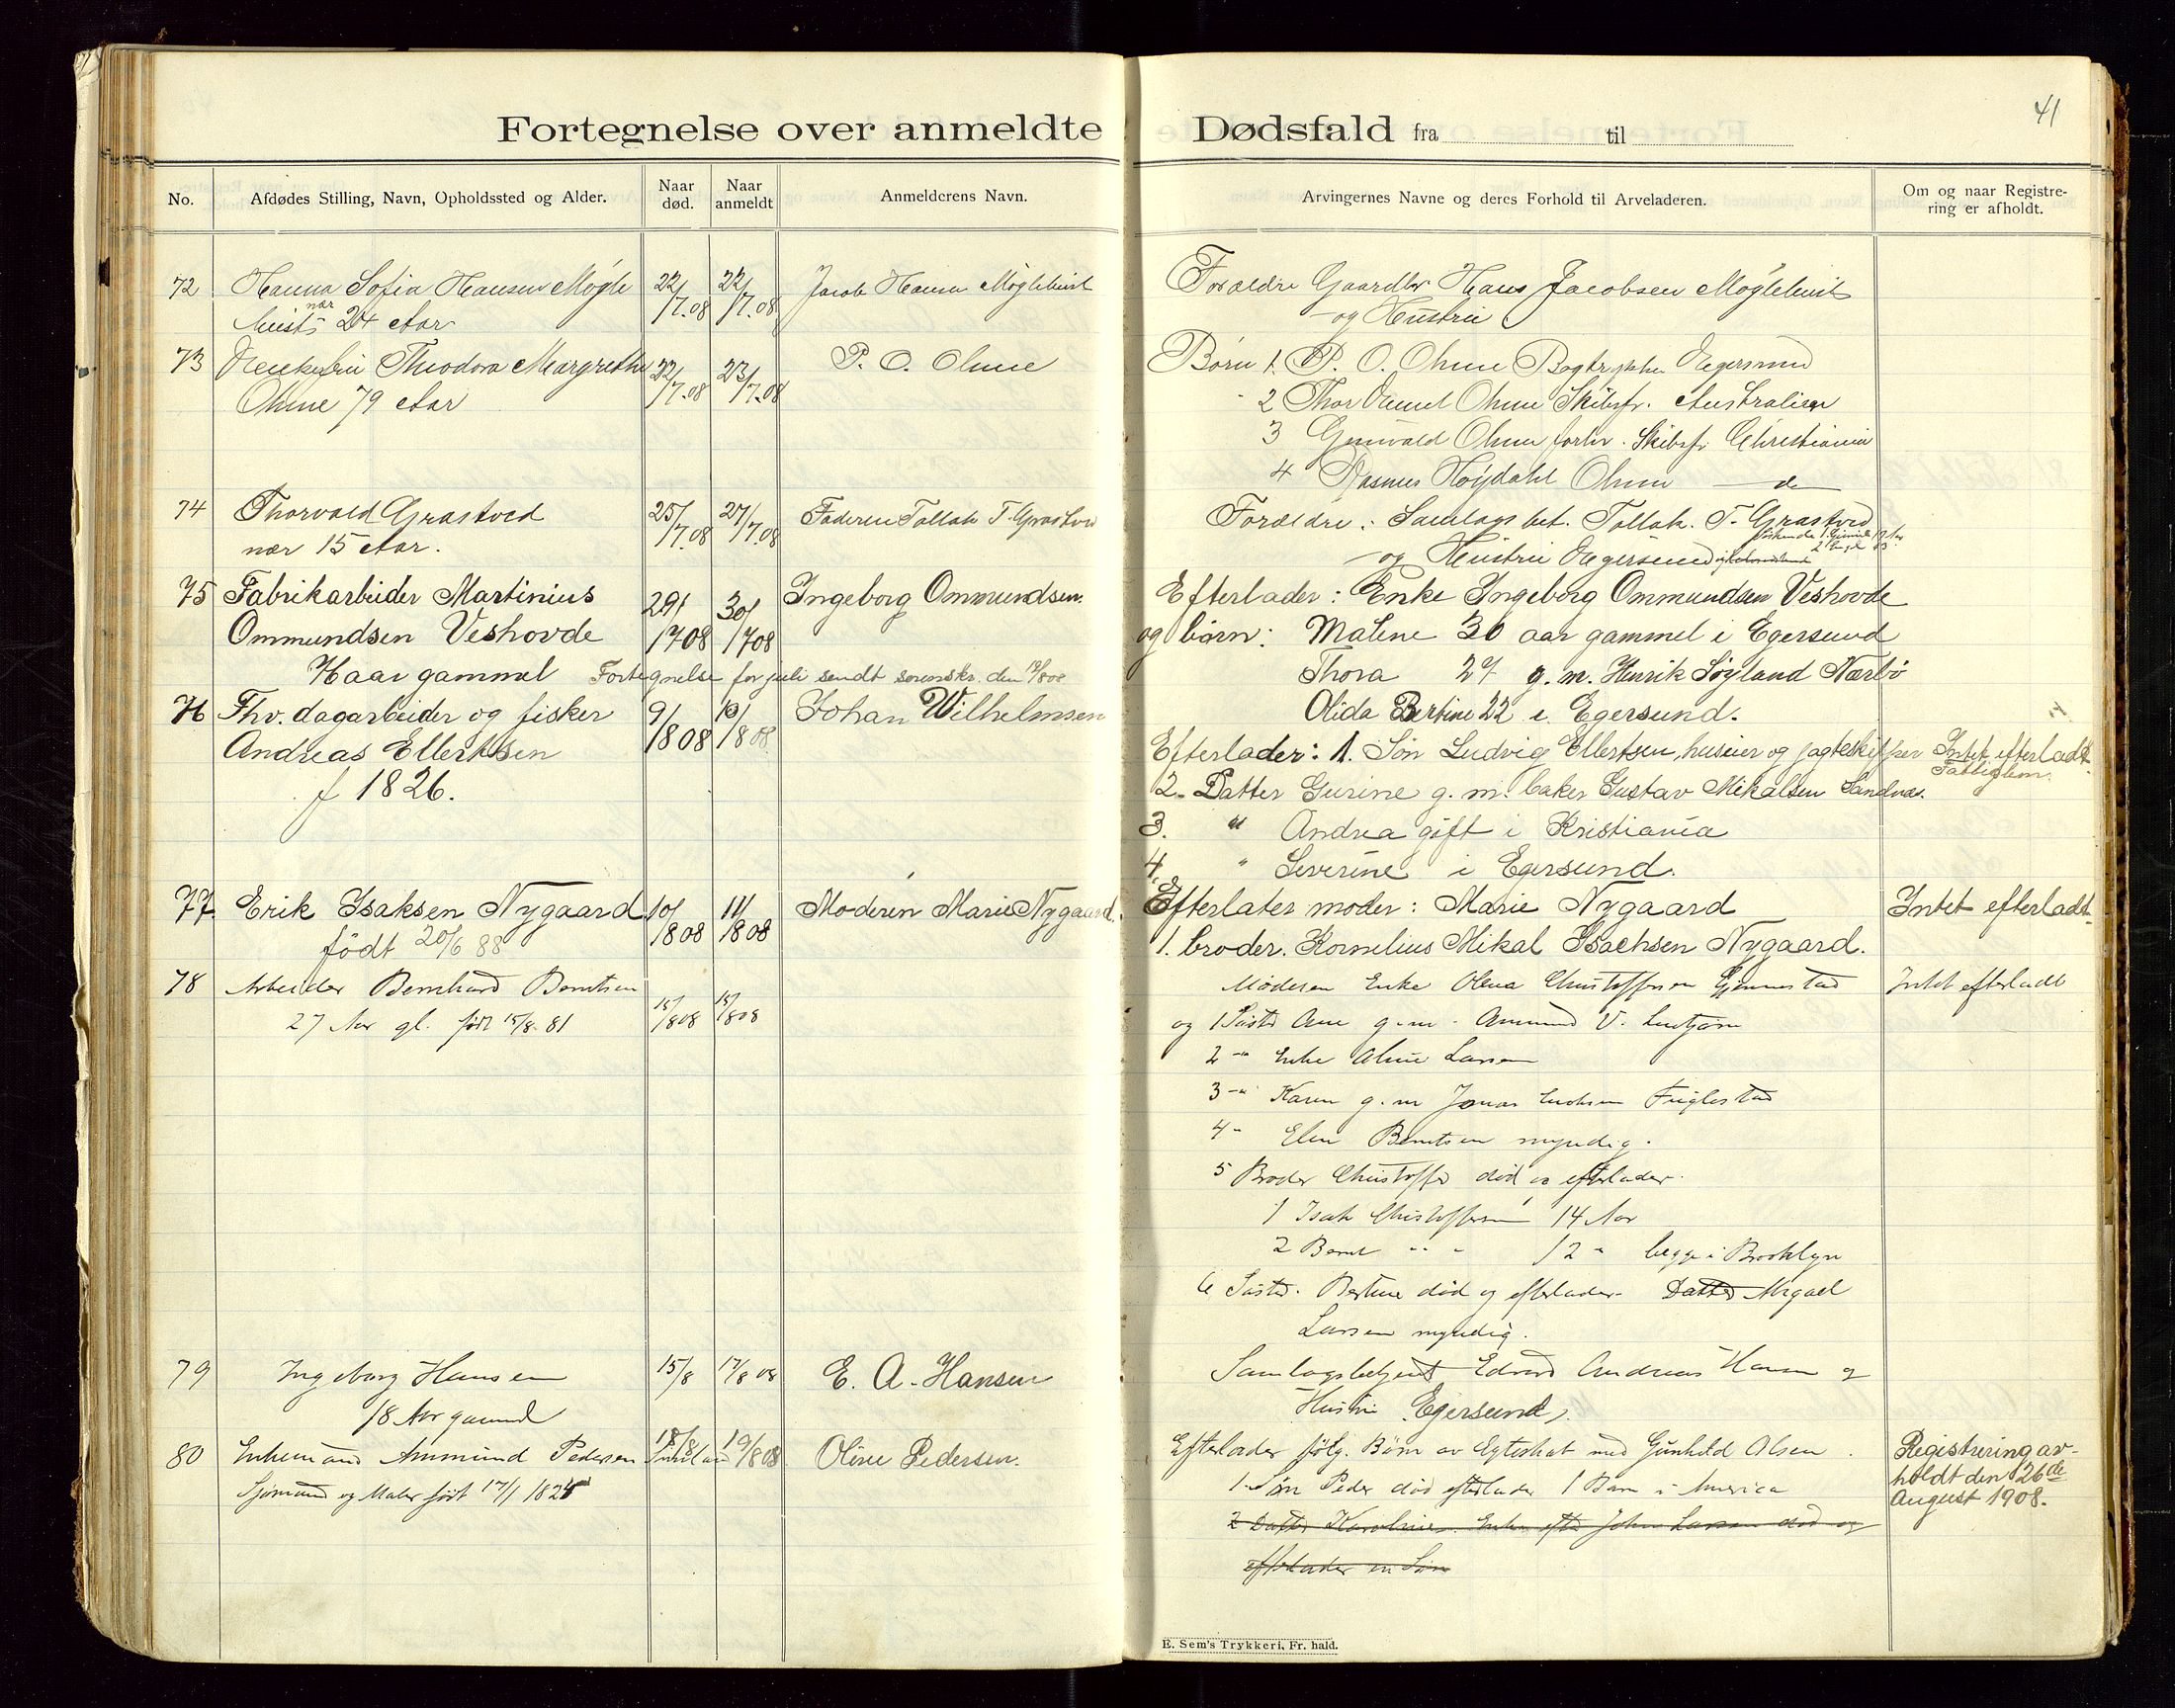 41
Fortegnelse over anmeldte Dødsfald fra til
No. Afdødes Stilling, Navn, Opholdssted og Alder. Naar død. Naar anmeldt Anmelderens Navn. Arvingernes Navne og deres Forhold til Arveladeren. Om og naar Registrering er afholdt.
72 Hanna Sofia Hansen Møgle 22/7.08 22/7.08 Jacob Hansen Møglehuist Forældre Gaardbr Hans Jacobsen Møglehuist
huist nær 24 Aar og Hustru
73 Enkefru Theodora Margrethe 22/7.08 23/7.08 P. O. Ohme Børn 1. P. O. Ohme Bogtrykker Egersund
Ohme 79 Aar 2 Thor Ohme Skibsfr. Australien
3 Grunvald Ohme forhv. Skibsfr Christiania
4 Rasmus Høydahl Ohme — do —
74 Thorvald Grastved 25/7.08 27/7.08 Faderen Tollak T. Grastved Forældre: Samlagsbet. Tollak. T. Grastved
nær 15 Aar. og Hustru Egersund
75 Fabrikarbeider Martinius 29/708 30/708 Ingeborg Ommundsen. Efterlader: Enke Ingeborg Ommundsen Veshovde
Ommundsen Veshovde og børn: Malene 30 aar gammel i Egersund
Haar gammel Fortegnelse for juli sendt sorenskr. den Thora 27 g. m. Henrik Søyland Nærbø
Olida Bertine 22 i Egersund.
76 Fhv. dagarbeider og fisker 9/808 10/808 Johan Wilhelmsen
Andreas Ellertsen Efterlader: 1. Søn Ludvig Ellertsen, huseier og jagteskipper Intet efterladt.
Fattiglem.
f 1826. 2. Datter Gurine g. m. baker Gustav Mikalsen Sandnes.
3. " Andrea gift i Kristiania
4. " Severine i Egersund.
77. Erik Isaksen Nygaard 10/808 11/808 Moderen Marie Nygaard. Efterlater moder: Marie Nygaard Intet efterladt.
født 20/6 88 1. broder. Kornelius Mikal Isachsen Nygaard.
78 Arbeider Bernhard Berntsen 15/808 15/808 Moderen Enke Olena Christoffersen Gjennestad Intet efterladt
27 Aar gl. født 15/8 81 og 1 Søster Ane g. m. Ammund V.
2 " Enke Aline Larsen
3 " Karen g. m Jonas Fuglestad
4 " Elen Berntsen myndig.
5 Broder Christoffer død og efterlader.
1 Isak Christoffersen 14 Aar
2 Bernt " " 12 " begge i Brooklyn
6 Søster. Bertine død og efterlader Datter Migael
Larsen myndig.
79 Ingeborg Hansen 15/8 17/8 08 E. A. Hansen Samlagsbetjent Edvard Andreas Hansen og
18 Aar gammel Hustru Egersund.
80 Enkemand Ammund Pedersen 18/8 19/8 08 Oline Pedersen. Efterlader følg. Børn av Egteskab med Gunhild Olsen. Registrering av-
Sjømand og Maler født 17/1 1825 1. Søn Peder død efterlader 1 Barn i America holdt den 26de
August 1908.
2 Datter Karoline Enke efter John Larsen død og
efterlader en Søn
E. Sem's Trykkeri, Fr. hald.